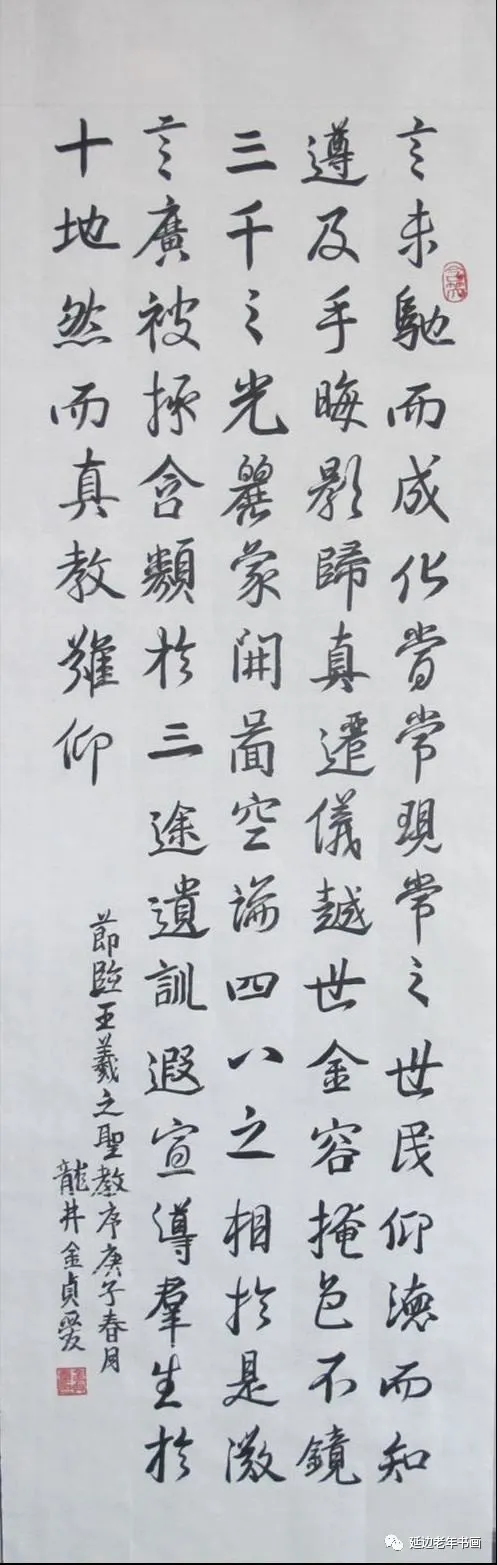 言未馳而成化當常現常之世民仰德而知
遵及乎晦影歸真遷儀越世金容掩色不鏡
三千之光麗象開圖空端四八之相於是微
言廣被拯含類於三途遺訓遐宣導羣生於
十地然而真教難仰
節臨王羲之聖教序庚子春月
龍井金貞愛
延边老年书画